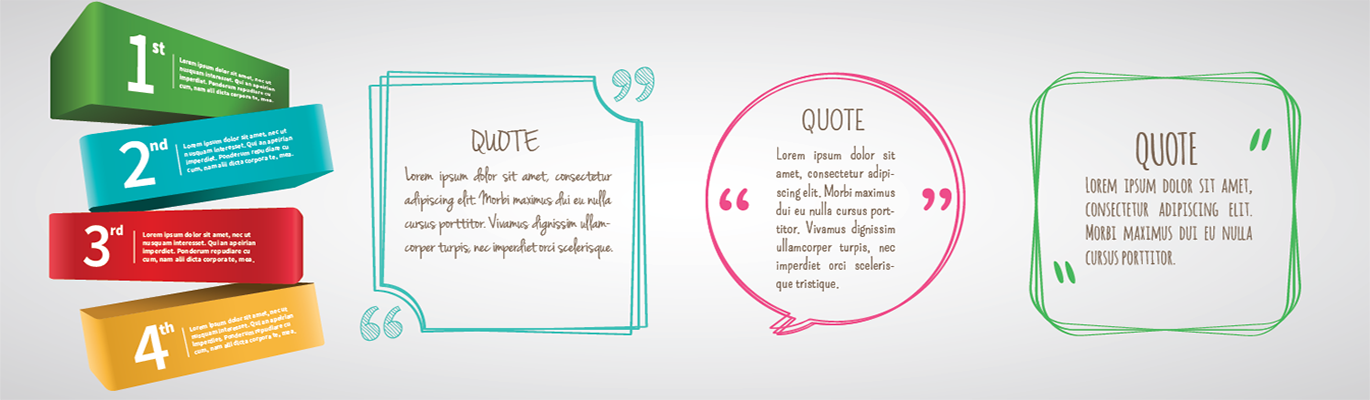 1st
Lorem ipsum dolor sit amet, nec ut
nusquam interesset. Qui an apeirian
imperdiet. Ponderum repudiare eu
cum, nam alii dicta corpora te, mea.
2nd
Lorem ipsum dolor sit amet, nec ut
nusquam interesset. Qui an apeirian
imperdiet. Ponderum repudiare eu
cum, nam alii dicta corpora te, mea.
3rd
Lorem ipsum dolor sit amet, nec ut
nusquam interesset. Qui an apeirian
imperdiet. Ponderum repudiare eu
cum, nam alii dicta corpora te, mea.
4th
Lorem ipsum dolor sit amet, nec ut
nusquam interesset. Qui an apeirian
imperdiet. Ponderum repudiare eu
cum, nam alii dicta corpora te, mea.
QUOTE
Lorem ipsum dolor sit amet, consectetur
adipiscing elit. Morbi maximus dui eu nulla
cursus porttitor. Vivamus dignissim ullam-
corper turpis, nec imperdiet orci scelerisque.
QUOTE
Lorem ipsum dolor sit
amet, consectetur adipi-
scing elit. Morbi maximus
dui eu nulla cursus port-
titor. Vivamus dignissim
ullamcorper turpis, nec
imperdiet orci sceleris-
que tristique.
QUOTE
LOREM IPSUM DOLOR SIT AMET,
CONSECTETUR ADIPISCING ELIT.
MORBI MAXIMUS DUI EU NULLA
CURSUS PORTTITOR.